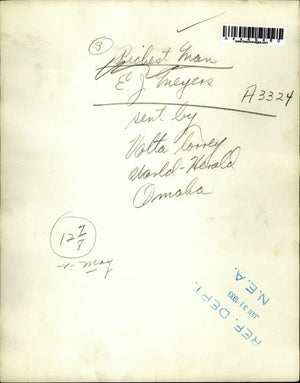 ③
Richest Man
E. J. Meyers
A3324
sent by
Volta Torrey
World-Herald
Omaha
REF. DEPT.
JAN 31 1933
N.E.A.